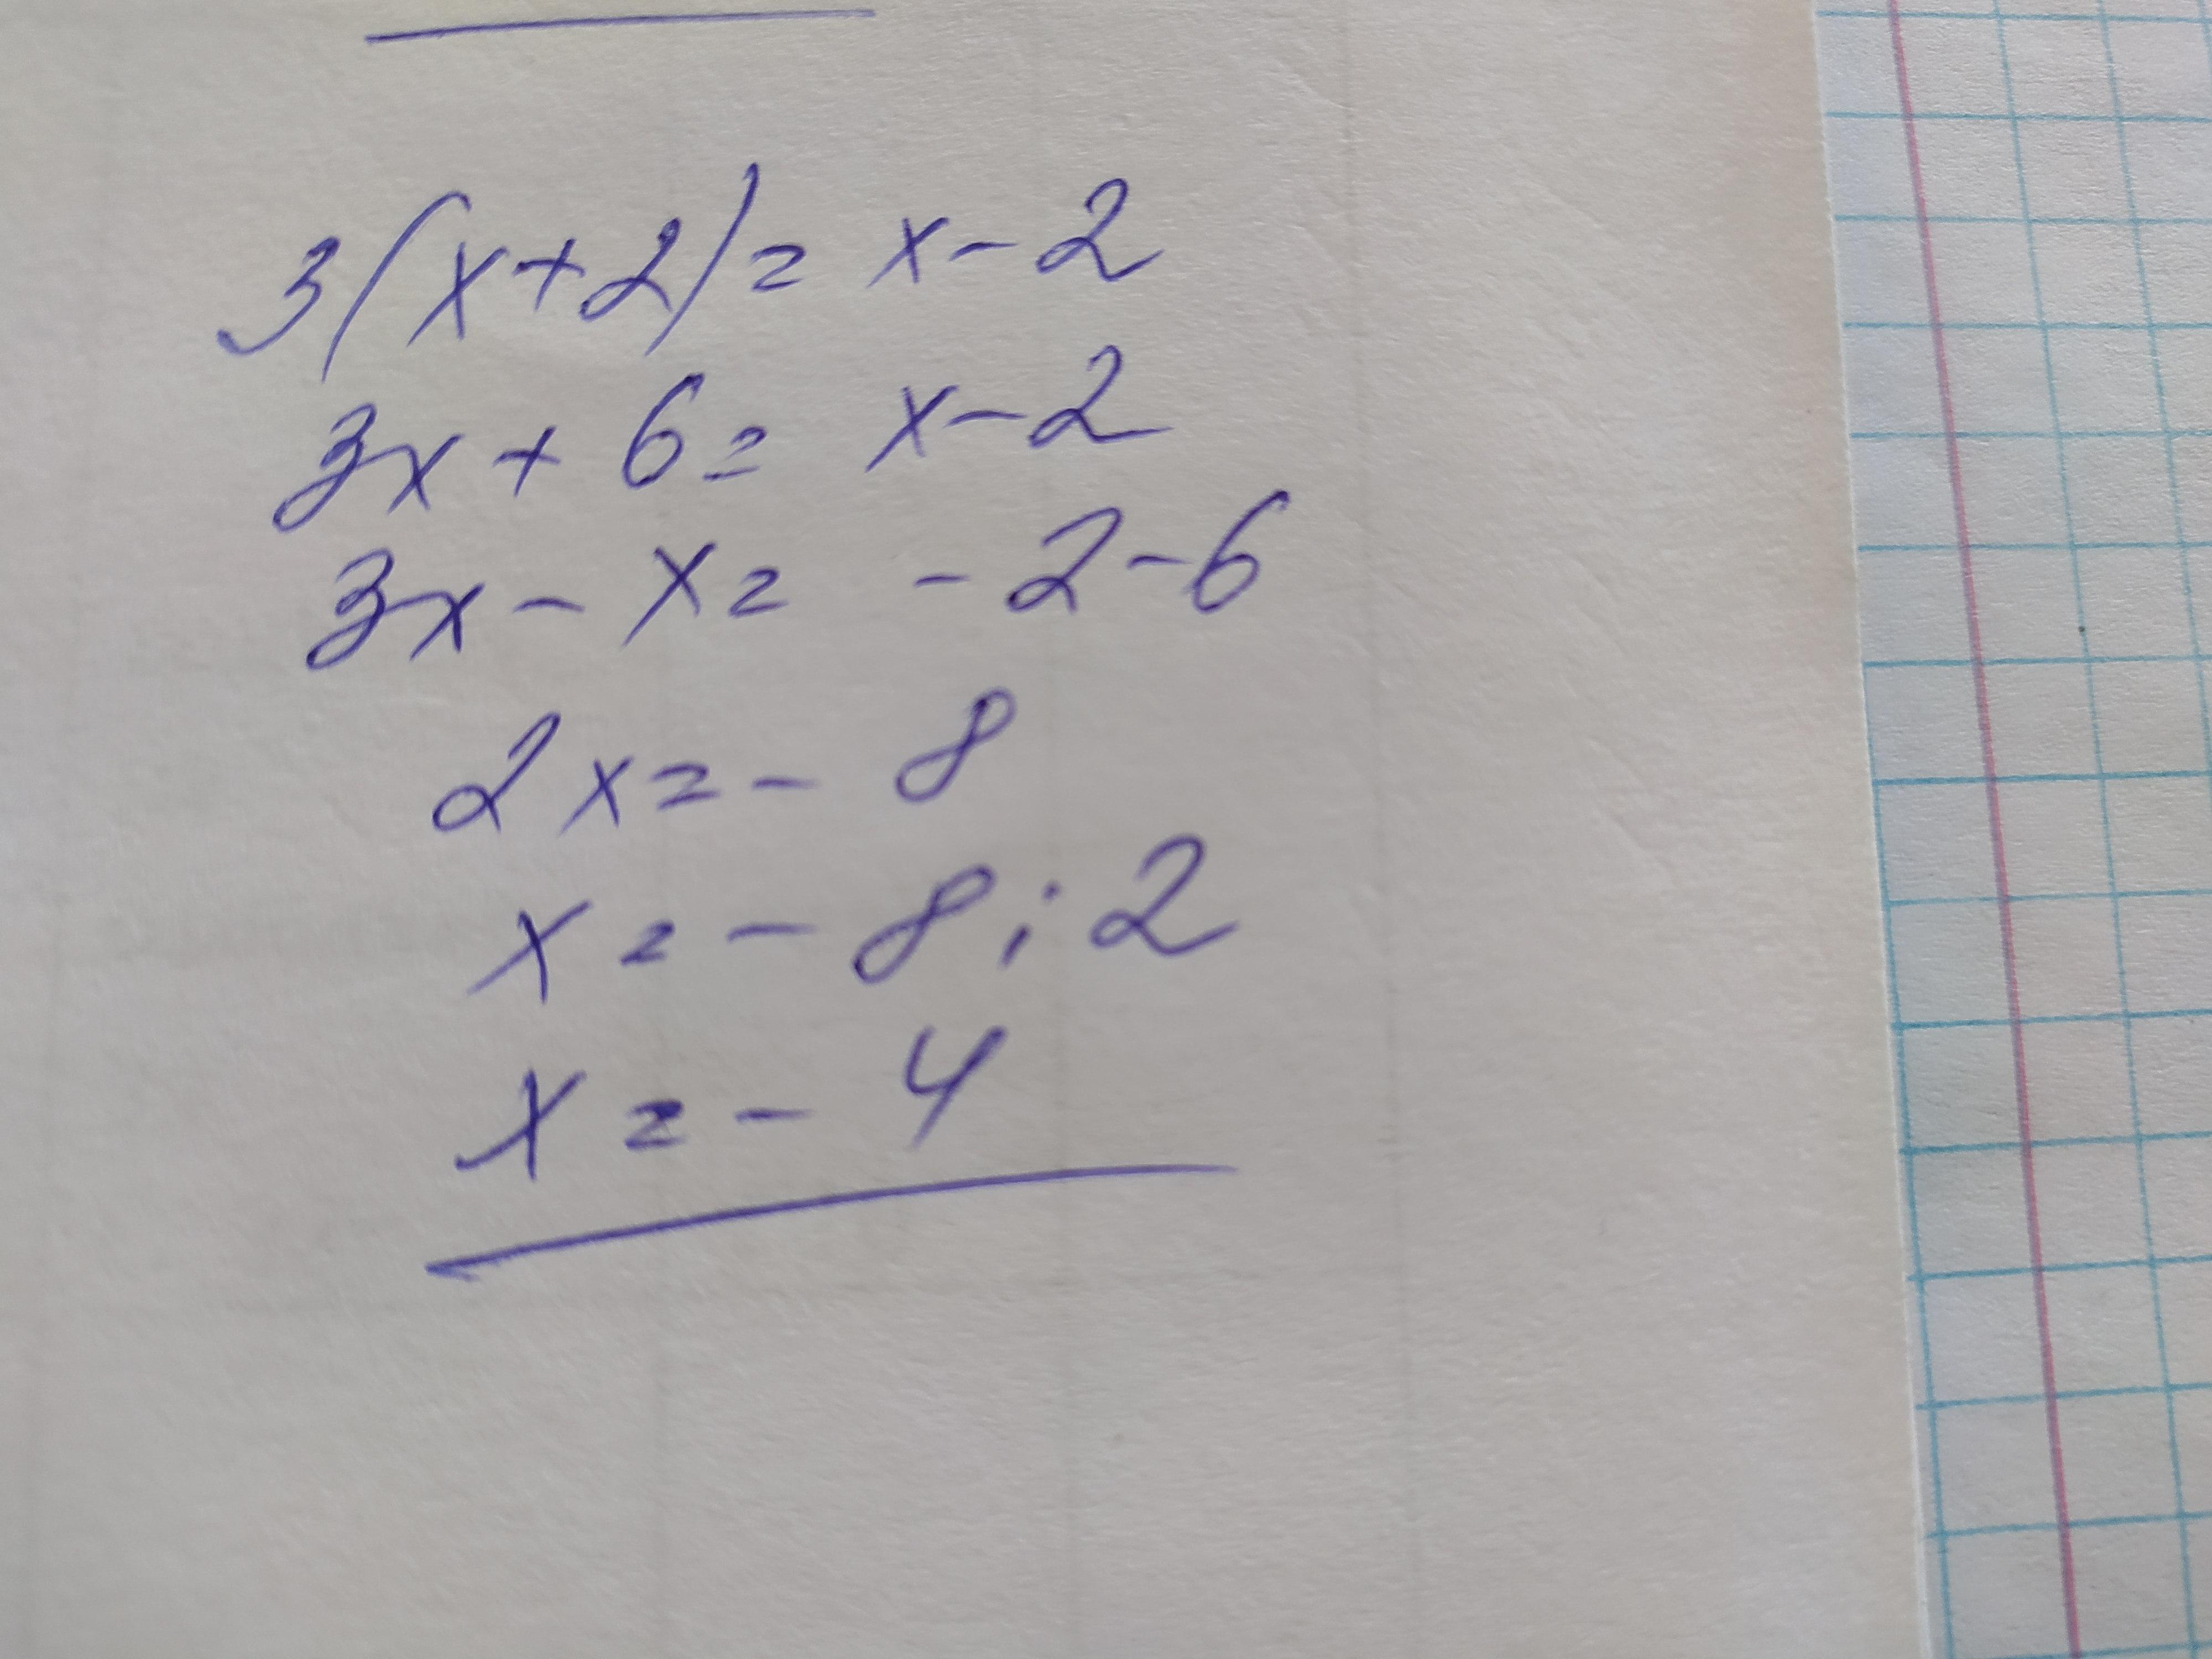 3(x+2)=x-2
3x+6=x-2
3x-x=-2-6
2x=-8
x=-8:2
x=-4